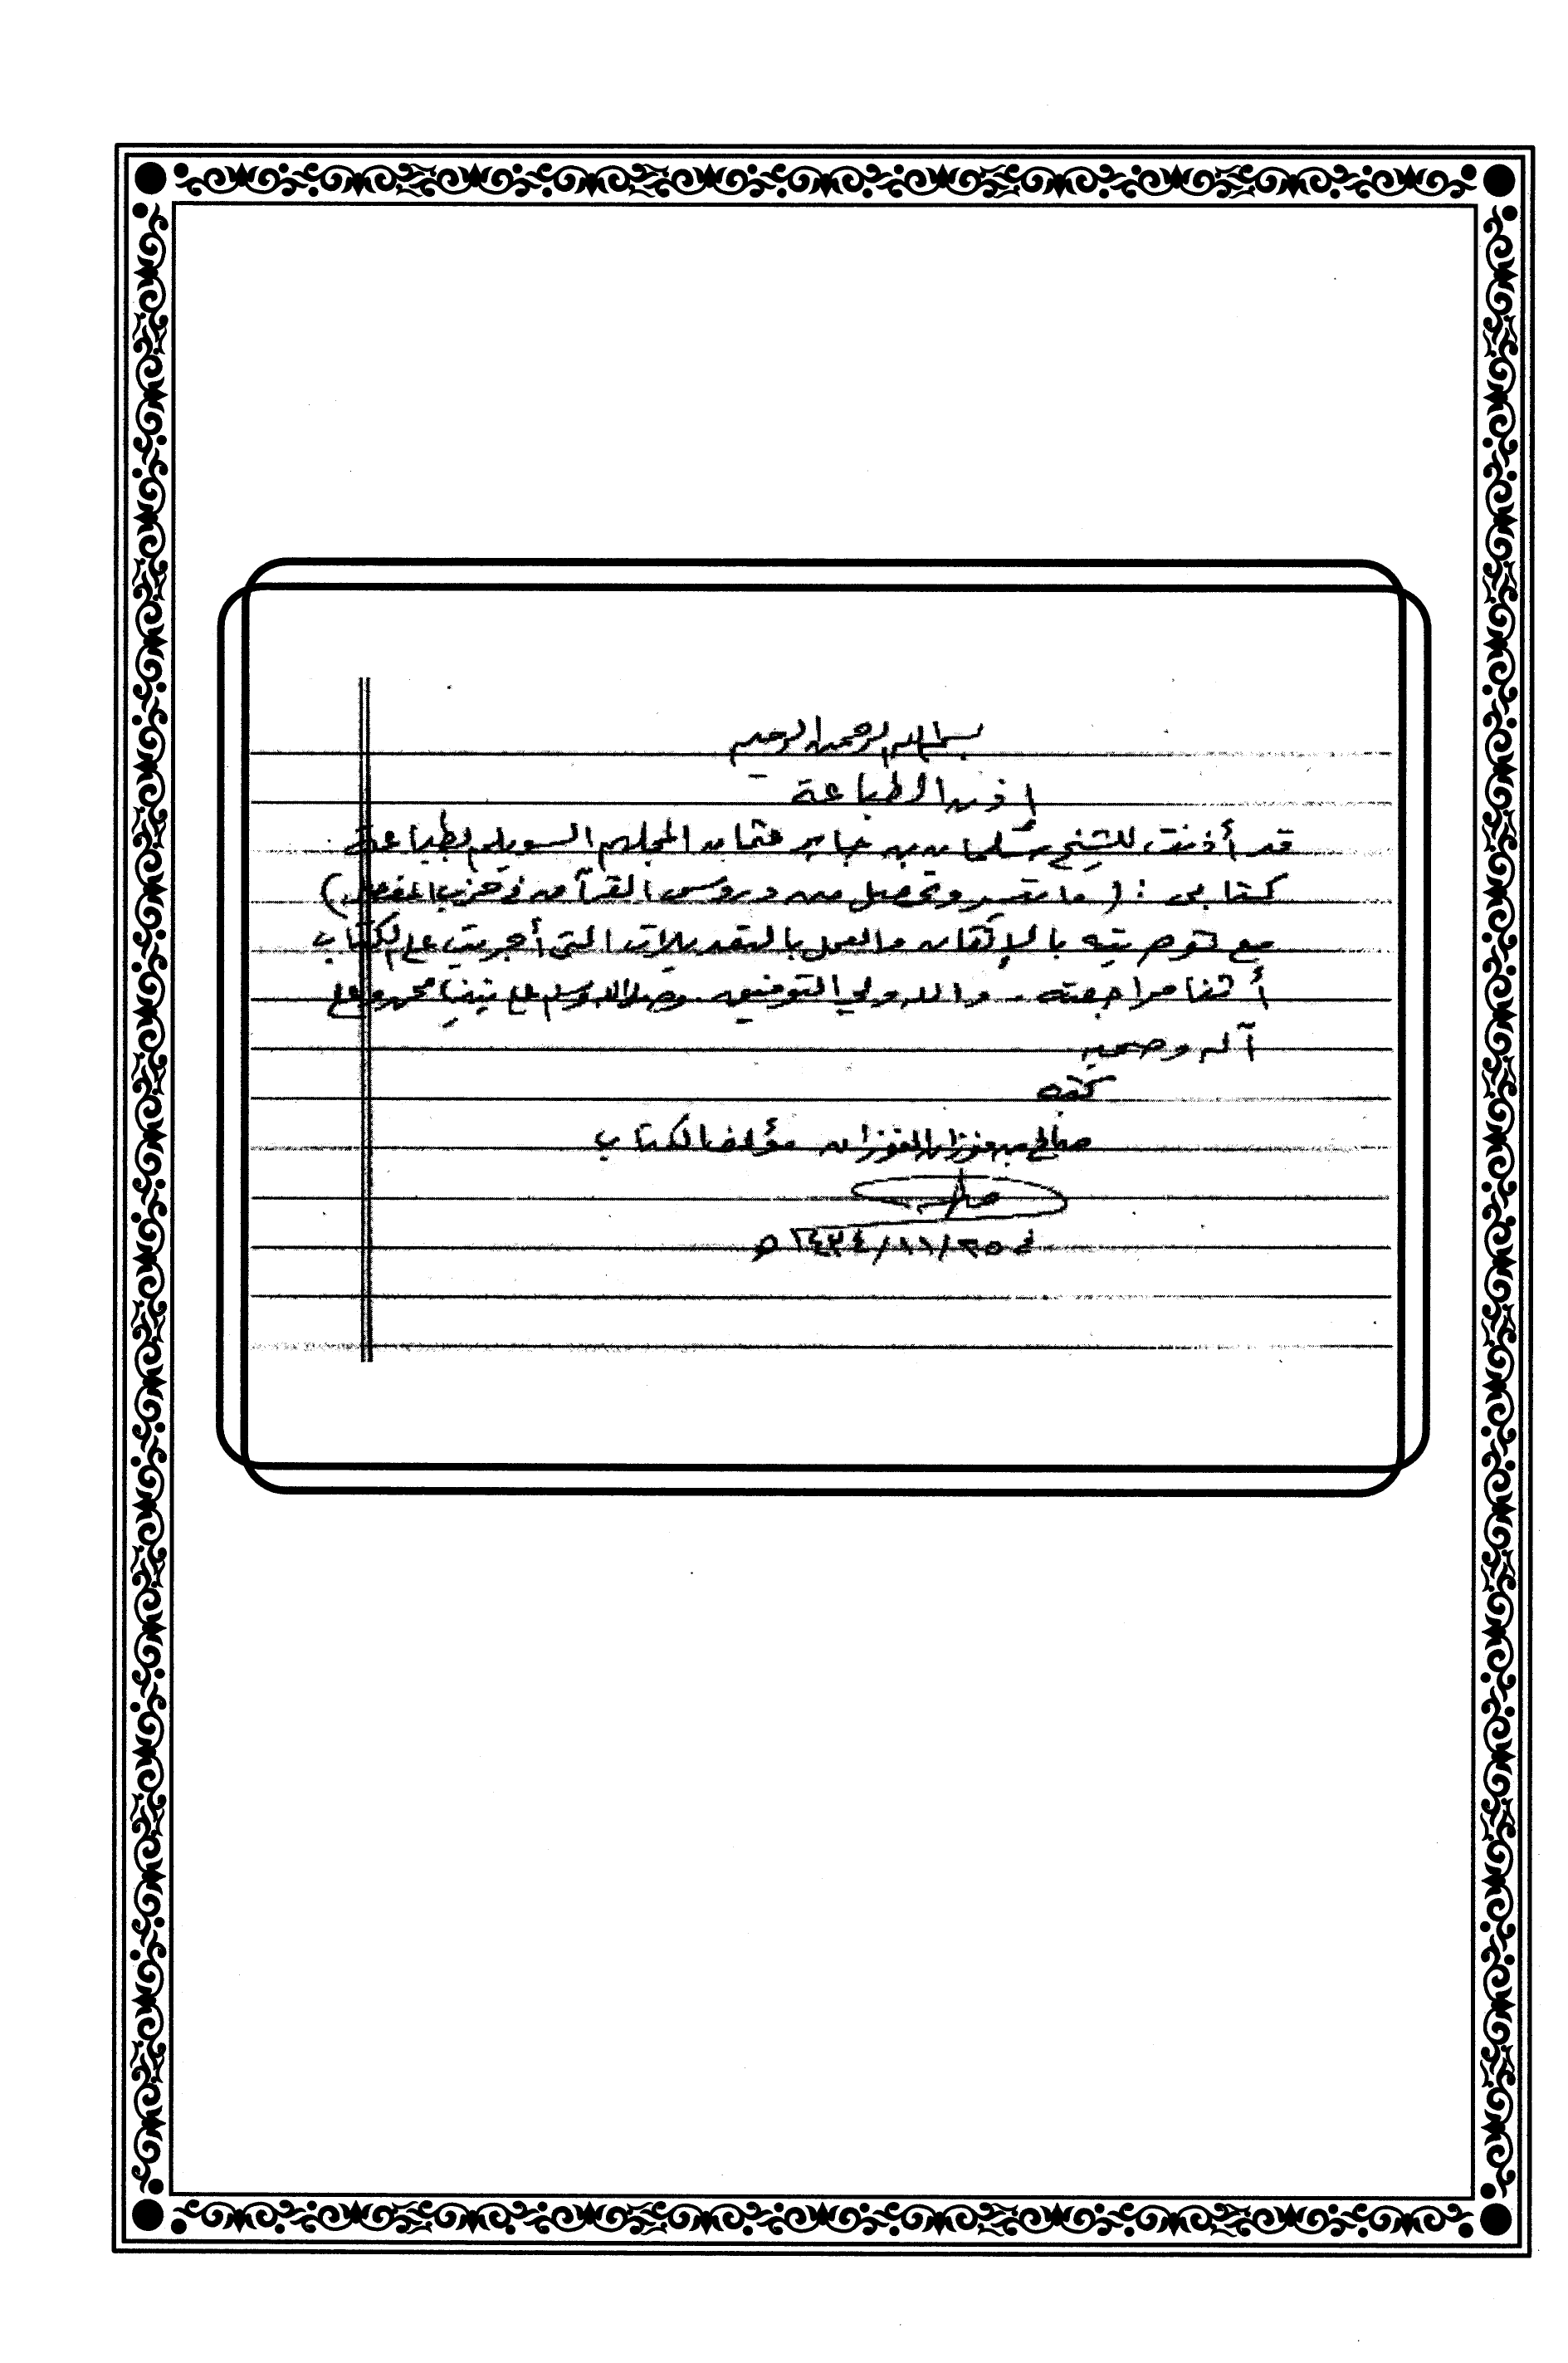 بسم الله الرحمن الرحيم
إذن الطباعة
قد أذنت للشيخ سليمان بن جابر عثمان المجلهم السويلم لطباعة
كتابي : ( ما تيسر وتحصل من دروس القرآن في حزب المفصل )
مع توصيته بالإتقان والعمل بالتعديلات التي أجريت على الكتاب
أثنا مراجعته . والله ولي التوفيق . وصلى الله وسلم على نبينا محمد وعلى
آله وصحبه
كتبه
صالح بن فوزان الفوزان مؤلف الكتاب
في ٢٥/١١/١٤٣٤ ه